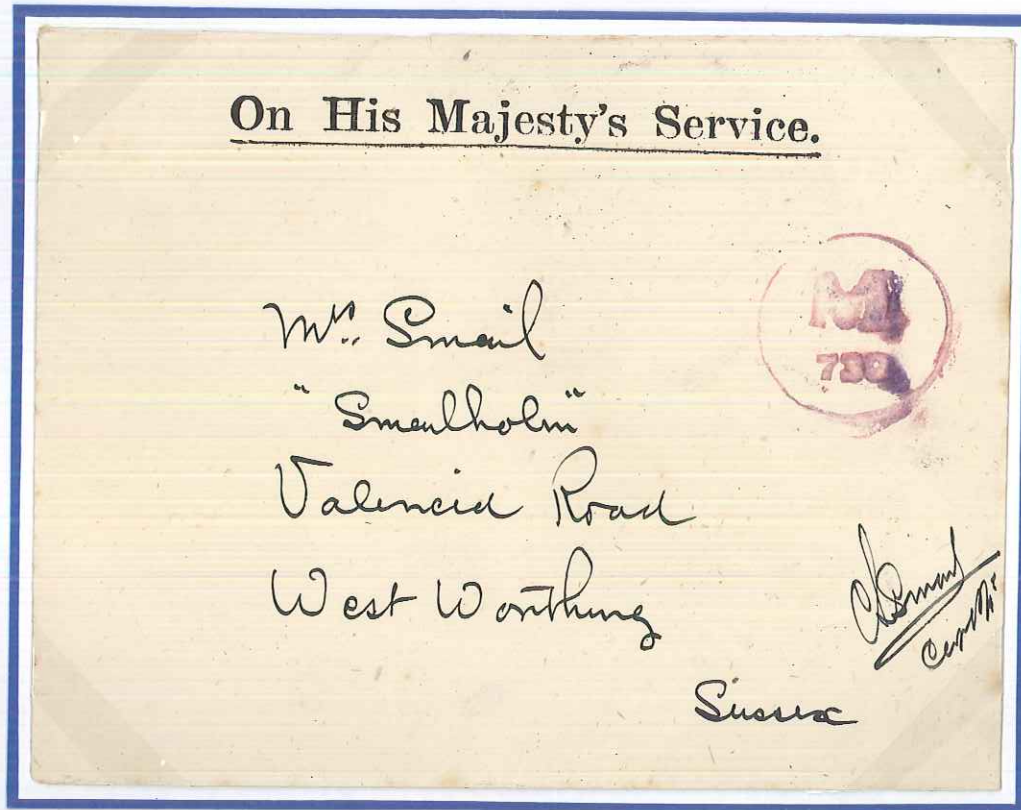 On His Majesty's Service.
Mrs. Smail
"Smailholm"
Valencia Road
West Worthing
Sussex
730